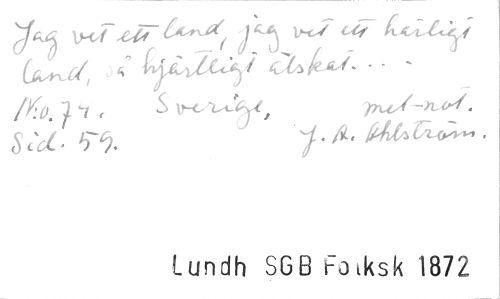 Jag vet ett land, jag vet ett härligt
land, så hjärtligt älskat....
No. 74. Sverige, met-not.
Sid. 59. J. A. Ahlström.
Lundh SGB Folksk 1872